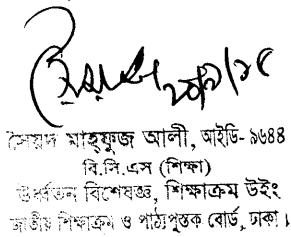 ২৯/৯/১৫
সৈয়দ মাহফুজ আলী, আইডি- ৯৬৪৪
বি.সি.এস (শিক্ষা)
ঊর্ধ্বতন বিশেষজ্ঞ, শিক্ষাক্রম উইং
জাতীয় শিক্ষাক্রম ও পাঠ্যপুস্তক বোর্ড, ঢাকা।